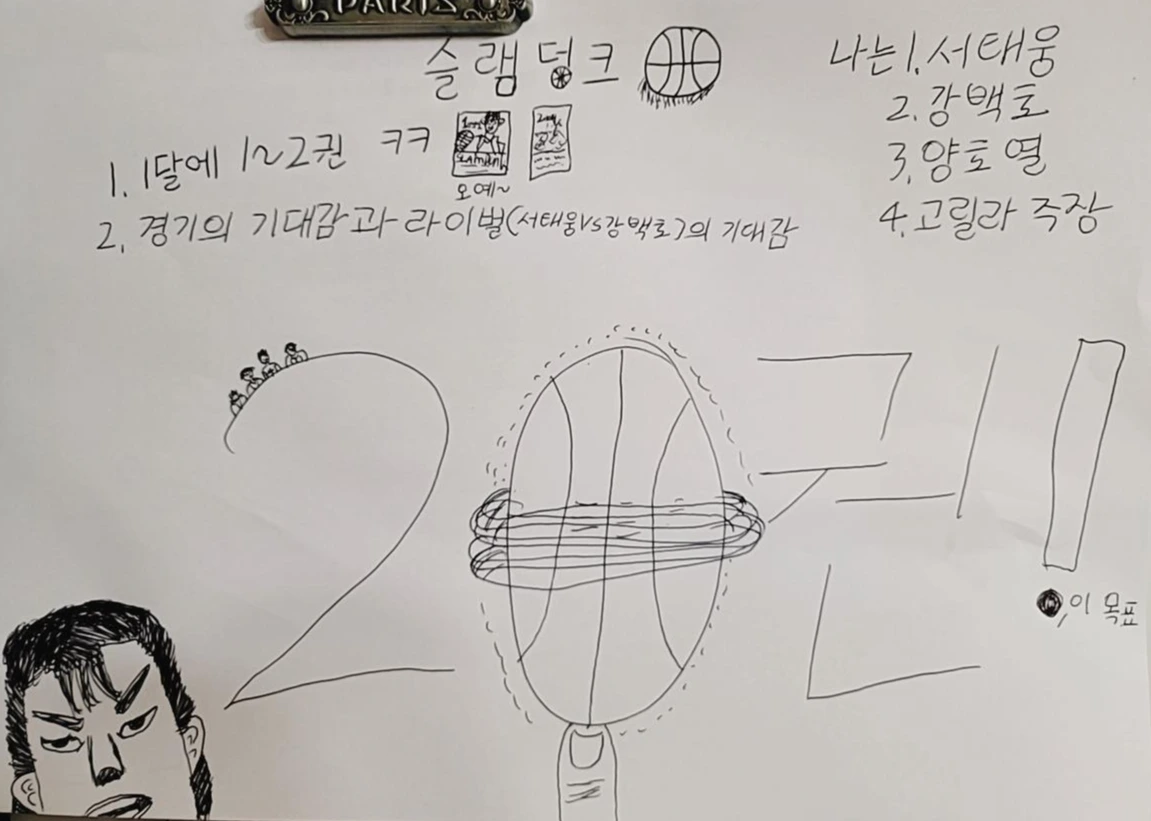 PARIS
슬램덩크
나는 1. 서태웅
2. 강백호
3. 양호열
4. 고릴라 주장
1. 1달에 1~2권 ㅋㅋ
오예~
2. 경기의 기대감과 라이벌(서태웅VS강백호)의 기대감
20권!
이 목표